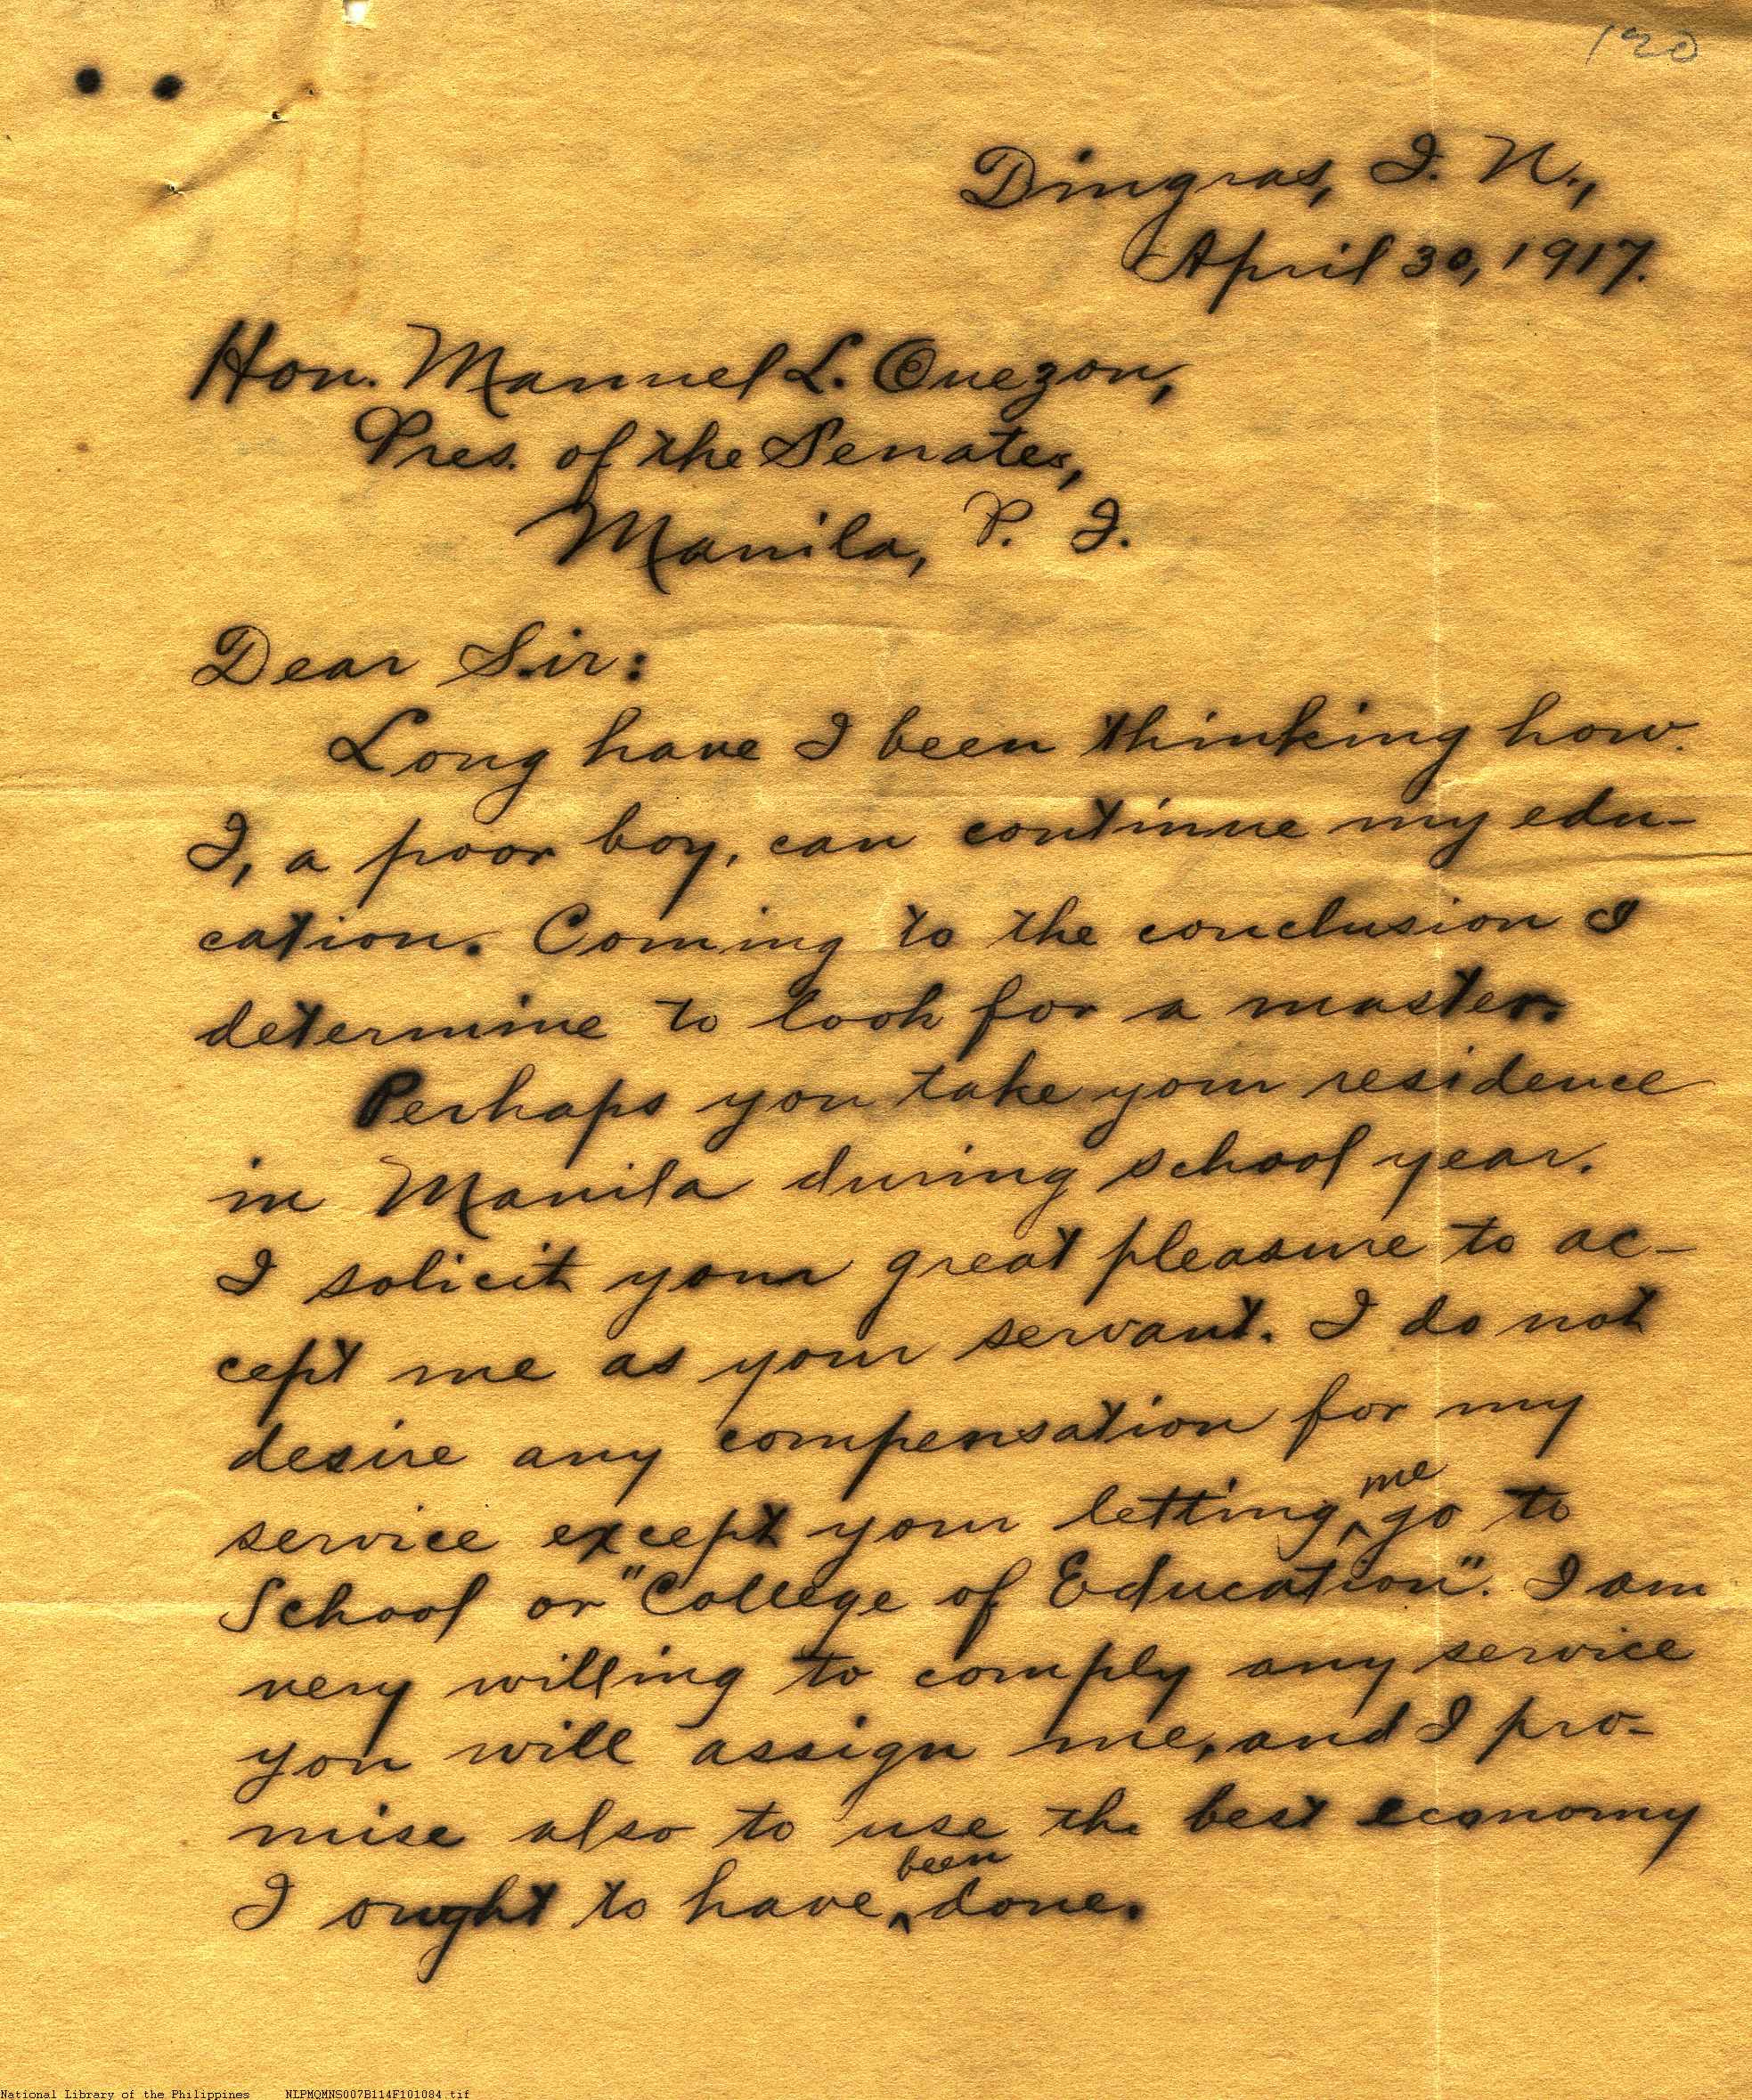 120
Dingras, I. N.,
April 30, 1917.
Hon. Manuel L. Quezon,
Pres. of the Senate,
Manila, P. I.
Dear Sir:
Long have I been thinking how
I, a poor boy, can continue my edu-
cation. Coming to the conclusion I
determine to look for a master.
Perhaps you take your residence
in Manila during school year.
I solicit your great pleasure to ac-
cept me as your servant. I do not
desire any compensation for my
service except your letting me go to
School or "College of Education". I am
very willing to comply any service
you will assign me, and I pro-
mise also to use the best economy
I ought to have been done.
National Library of the Philippines NLPMQMNS007B114F101084.tif